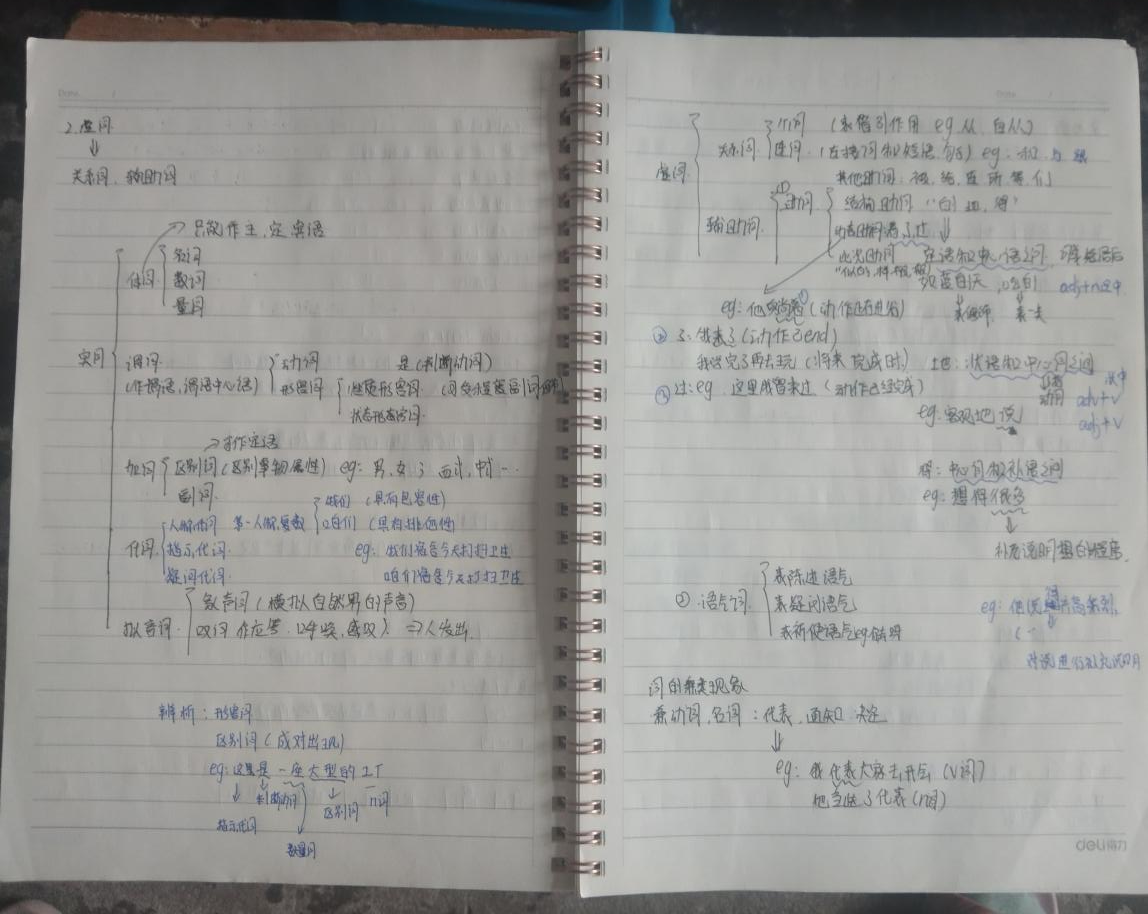 2.虚词
关系词、辅助词
只能作主、定、宾语
体词
名词
数词
量词
实词
谓词
(作谓语,谓语中心语)
动词 是(判断动词)
形容词
性质形容词 (可受程度副词
状态形容词
只作定语
加词
区别词(区别事物属性) eg: 男、女、西式、中式…
副词
代词
人称代词 第一人称,复数
我们 (具有包容性)
咱们 (具有排他性)
指示代词 eg: 我们宿舍今天打扫卫生
疑问代词 咱们宿舍今天打扫卫生
拟音词
象声词(模拟自然界的声音)
叹词 作应答、呼唤、感叹) ⇒人发出.
辨析: 形容词
区别词(成对出现)
eg: 这里是一座大型的工厂
指示代词
判断动词
数量词
区别词
n词
虚词
关系词
介词 (表借引作用 eg 从、自从)
连词 (连接词和短语、句子) eg. 和、与、跟
辅助词
① 助词
其他助词: 被、给、连、所、等、们
结构助词 "的、地、得"
动态助词 着了过
比况助词
"似的、样、般
定语和中心语之间
蔚蓝的天
adj+n
eg: 他 着① (动作还在进行)
② 了: 我来了(动作已end)
我做完了再去玩 (将来完成时)
地: 状语和中心词之间
动词
adv+v
adj+v
③ 过: eg. 这里我曾来过 (动作已经完成)
eg. 客观地说
得: 中心词和补语之间
eg: 想得很多
补充说明想的程度.
② 语气词
表陈述语气
表疑问语气
表祈使语气eg
词的兼类现象
兼动词、名词: 代表、通知、决定
eg: 我代表大家去开会 (V词)
他当选了代表 (n词)
deli得力